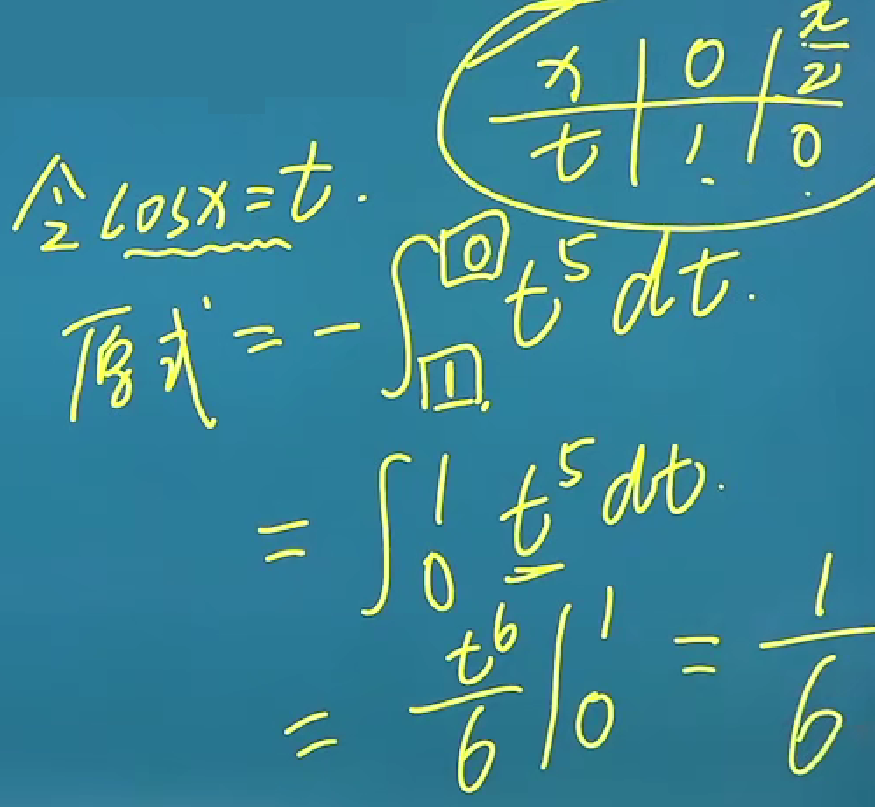 x | 0 | π/2
t | 1 | 0
令 cosx=t.
原式 = -∫₁⁰ t⁵ dt.
= ∫₀¹ t⁵ dt.
= t⁶/6 |₀¹ = 1/6